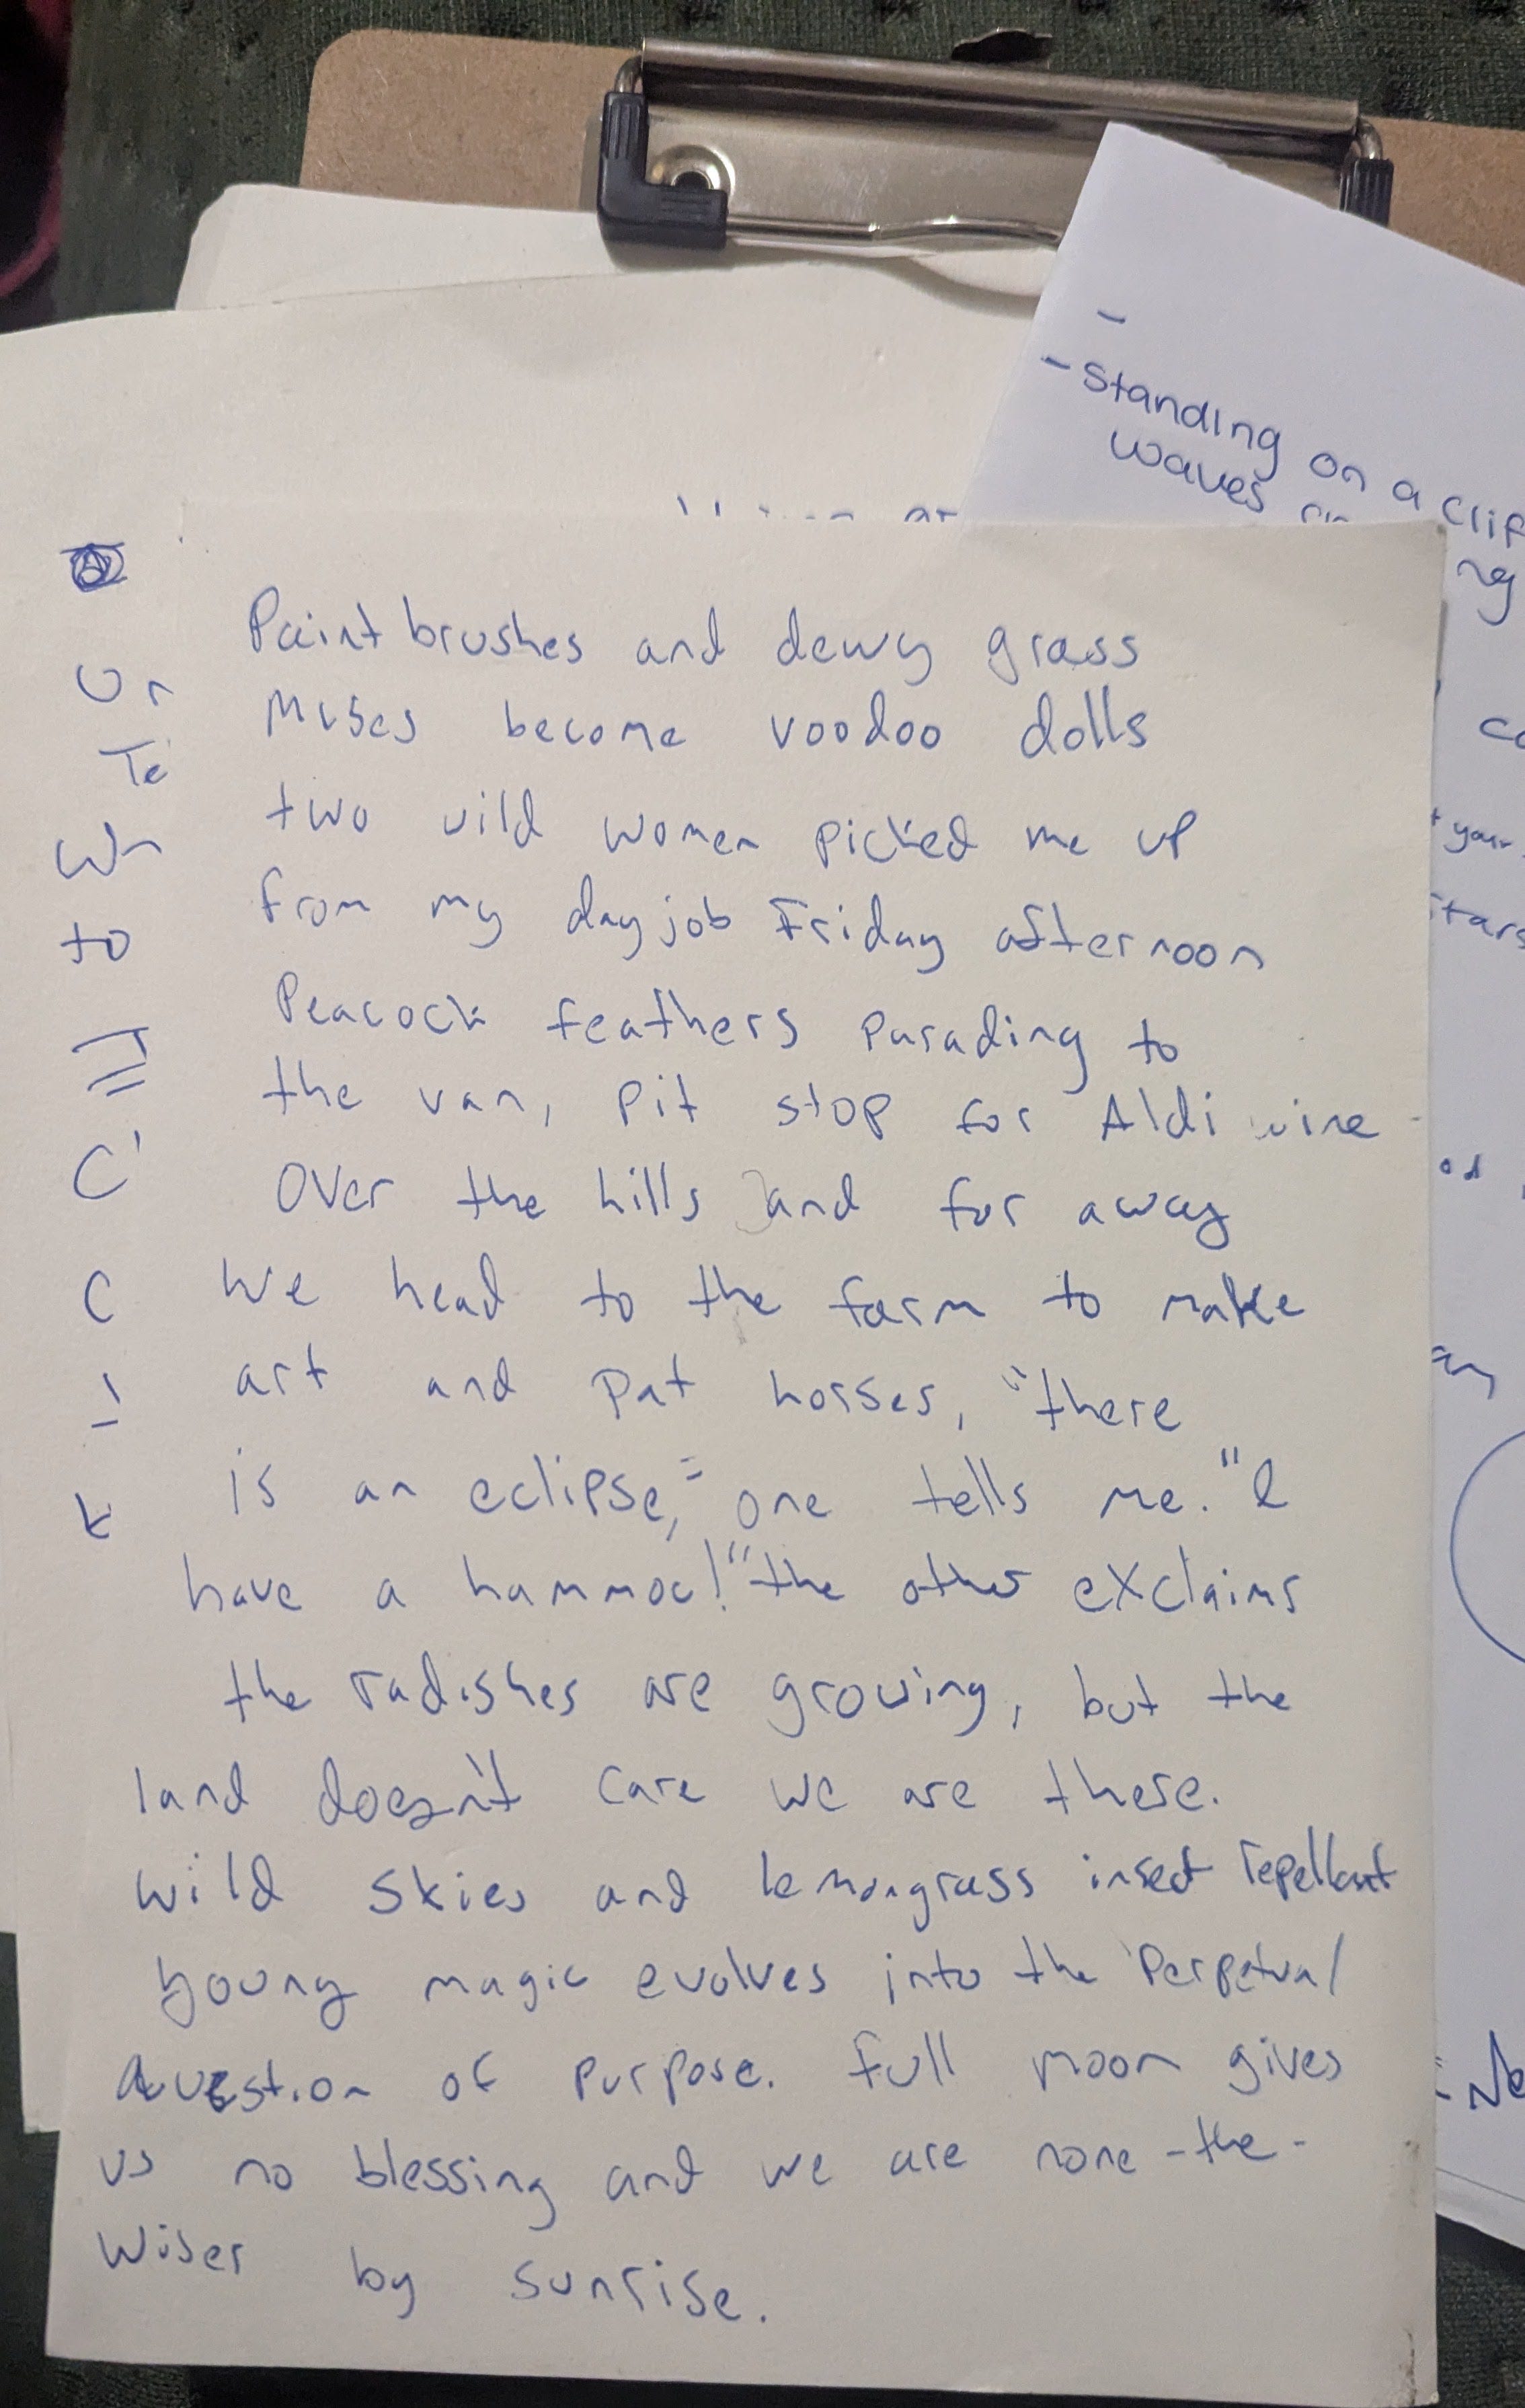 - Standing on a clif
waves
ng
Paintbrushes and dewy grass
Muses become voodoo dolls
two vild women picked me up
from my day job Friday afternoon
Peacock feathers parading to
the van, pit stop for Aldi wine
Over the hills and far away
We head to the farm to make
art and pat horses, "there
is an eclipse," one tells me. "I
have a hammoc!" the other exclaims
the radishes are growing, but the
land doesn't care we are there.
Wild skies and lemongrass insect repellant
young magic evolves into the perpetual
question of purpose. Full moon gives
us no blessing and we are none-the-
wiser by sunrise.
Or
Te
Wh
to
I
C
C
k
co
your
stars
od
Ne